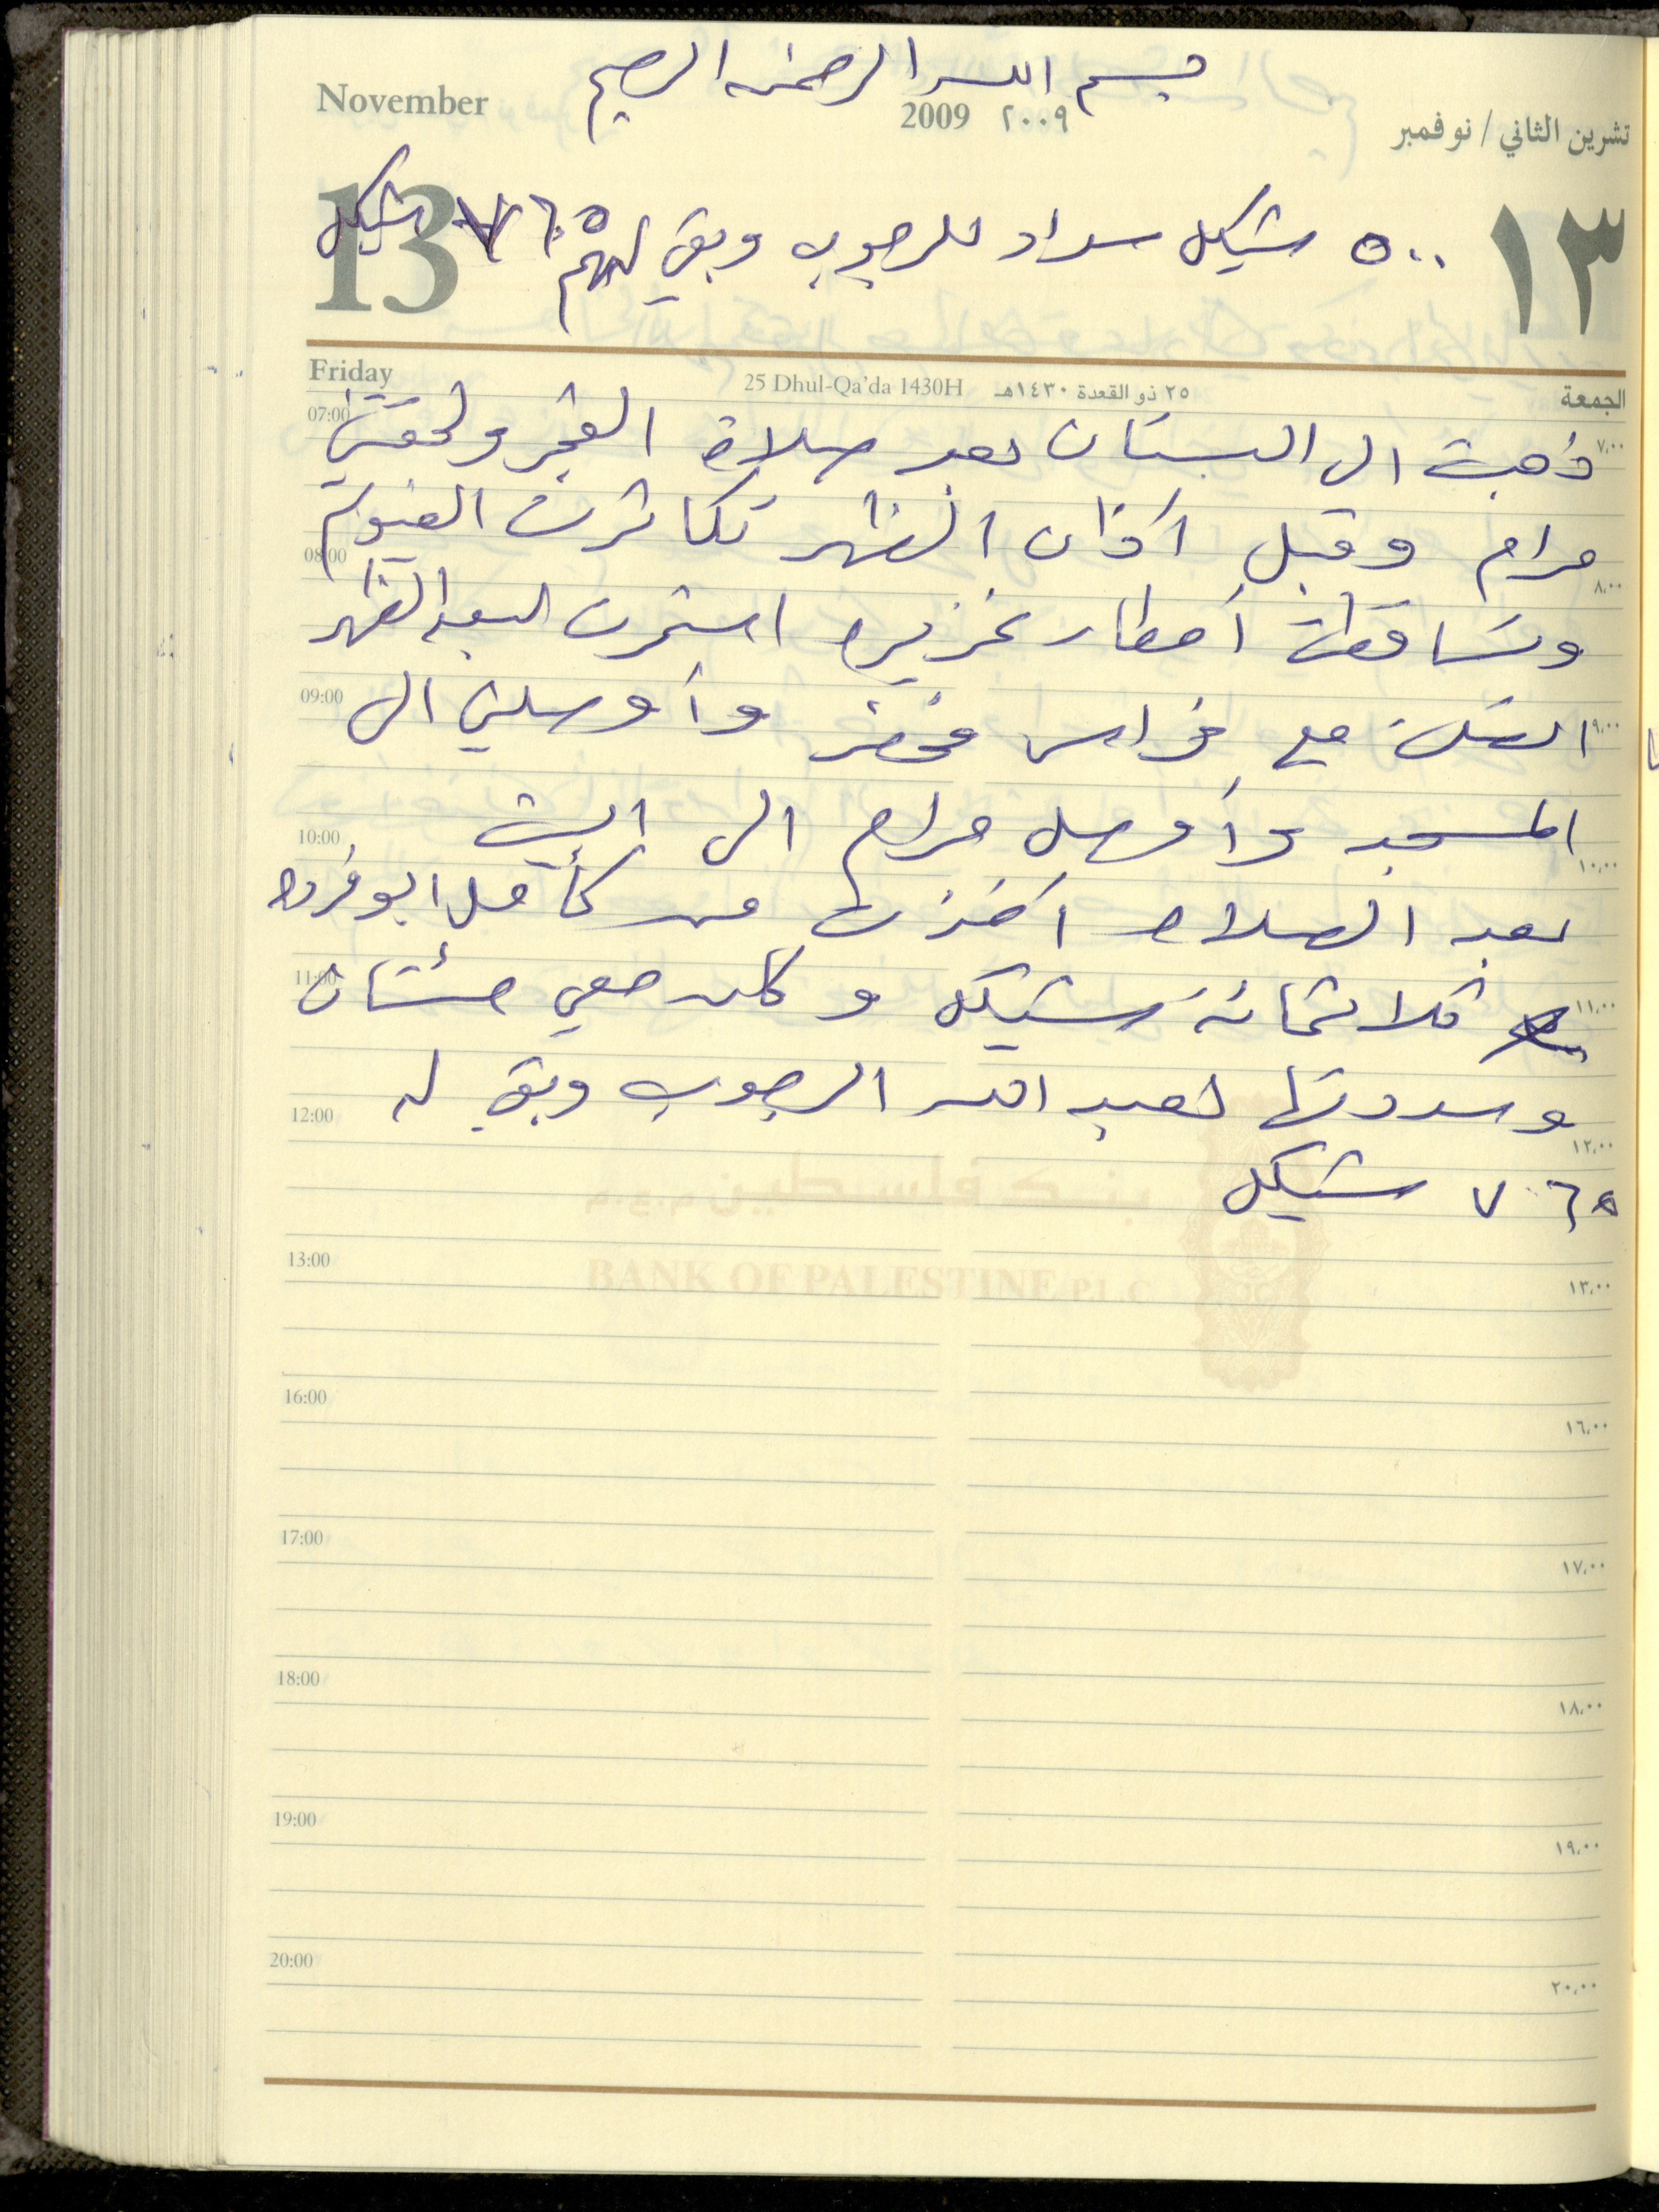 بسم الله الرحمن الرحيم
November
2009 ٢٠٠٩
تشرين الثاني / نوفمبر
13
١٣
٥٠٠ شيكل سداد للرجوب وبقي لهم ٧٦٥ شيكل
Friday
25 Dhul-Qa'da 1430H ٢٥ ذو القعدة ١٤٣٠هـ
الجمعة
07:00 ٧,٠٠
ذهبت الى البستان بعد صلاة الفجر ولحقتني
مرام وقبل اذان الظهر تكاثرت الغيوم
08:00 ٨,٠٠
وتساقطت أمطار غزيره استمرت لبعد الظهر
09:00 ٩,٠٠
اتصلت مع فراس وأوصلني الى
المسجد وأوصل مرام الى البيت
10:00 ١٠,٠٠
بعد الصلاة أخذت من كامل ابو فرده
11:00 ١١,٠٠
ثلاثمائة شيكل وكان معي مئتان
وسددتها لعبد الله الرجوب وبقي له
12:00 ١٢,٠٠
٧٦٥ شيكل
بنك فلسطين
BANK OF PALESTINE P.L.C
13:00 ١٣,٠٠
16:00 ١٦,٠٠
17:00 ١٧,٠٠
18:00 ١٨,٠٠
19:00 ١٩,٠٠
20:00 ٢٠,٠٠